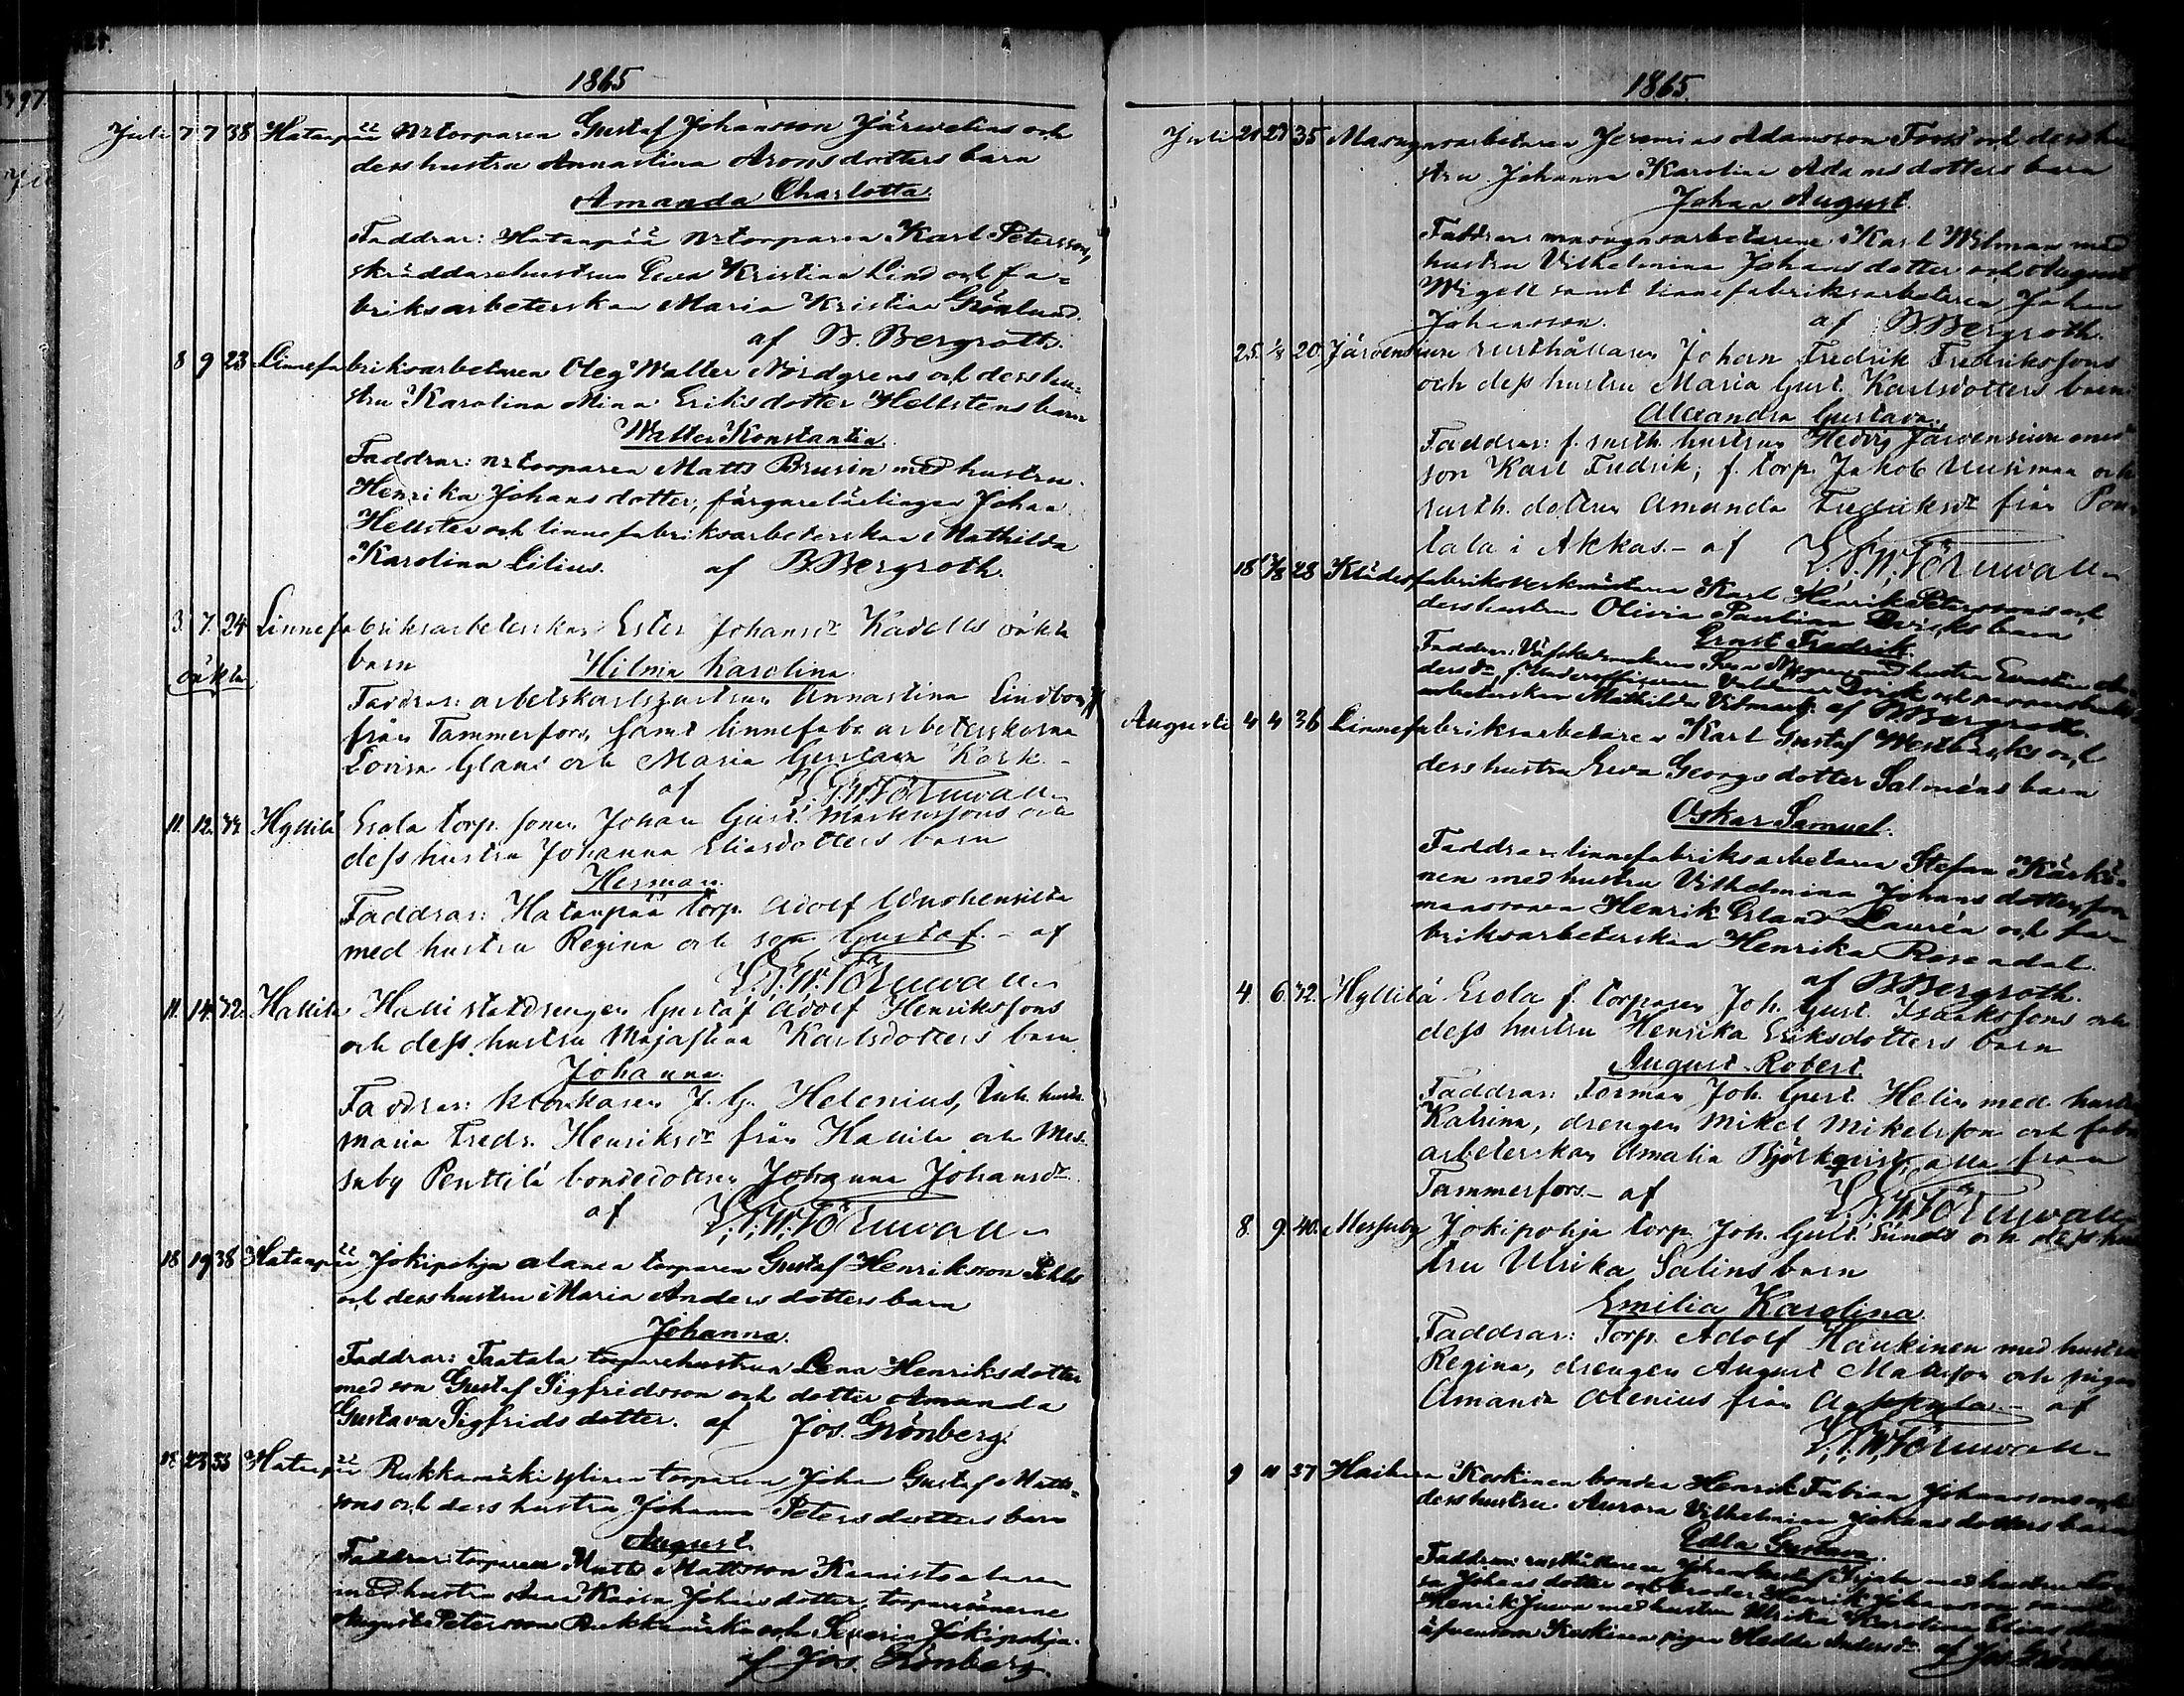 1865
Juli 7 7 38 Hatanpää N:2 torparen Gustaf Johansson Järvelins och
dess hustru Annastina Aronsdotters barn
Amanda Charlotta.
Faddrar: Hatanpää N:2 torparen Karl Petersson,
skräddarehustrun Eva Kristina Lind och fa-
briksarbeterskan Maria Kristina Grönlund.
af B. Bergroth.
8 9 23 Linnefabriksarbetaren Oleg Walter Nordgrens och dess hu-
stru Karolina Mina Eriksdotter Hellstens barn
Walter Konstantin.
Faddrar: N:2 torparen Matts Brusin med hustru
Henrika Johansdotter, färgarelärlingen Johan
Hellsten och linnefabriksarbeterskan Mathilda
Karolina Lilius. af B. Bergroth.
3. 7. 24 Linnefabriksarbeterskan Ester Johansdr oäkta
oäkta barn Hilma Karolina.
Faddrar: arbetskarlshustrun Annastina Lindbom
från Tammerfors samt linnefabr. arbeterskorna
Lovisa och Maria Gustava
af
11. 12. Hyllilä Erola torp. sonen Johan Gust. Markussons och
dess hustru Johanna Eliasdotters barn
Herman.
Faddrar: Hatanpää torp. Adolf
med hustru Regina och son Gustaf. - af
11. 14. 32. Hallila Halli statdrengen Gustaf Adolf Henrikssons
och dess hustru Majastina Karlsdotters barn
Johanna.
Faddrar: klockaren J. G. Helenius, inh. hustr.
Maria Fredr. Henriksdr från Hallila och Mes-
suby Penttilä bondedottren Johanna Johansdr.
af
18 19 38 Hatanpää Jokipohja alanen torparen Gustaf Henriksson
och dess hustru Maria Andersdotters barn
Johanna.
Faddrar: Taatala torparehustrun Lena Henriksdotter
med son Gustaf Sigfridsson och dotter Amanda
Gustava Sigfridsdotter. af Jos. Grönberg.
18 23 33 Hatanpää Rukkamäki ylinen torparen Johan Gustaf Matts-
sons och dess hustru Johanna Petersdotters barn
August.
Faddrar: torparen Matts Mattsson
med hustru Anna Kaisa Johansdotter, torparesönerne
August Petersson Rukkamäki och Severin Jokipohja.
af Jos. Grönberg.
1865.
Juli 35 Masugnsarbetaren Jeremias Adamsson och dess hu-
stru Johanna Karolina Adamsdotters barn
Johan August.
Faddrar: masugnsarbetarene Karl Wilman med
hustru Vilhelmina Johansdotter och August
Wigell samt linnefabriksarbetaren Johan
Johansson. af B. Bergroth.
25. 20. Järvensivu rusthållaren Johan Fredrik Fredrikssons
och dess hustru Maria Gust. Karlsdotters barn
Alexandra Gustava.
Faddrar: f. rusth. hustrun Hedvig Järvensivu med
son Karl Fredrik, f. torp. Jakob Uusimaa och
rusth. dottren Amanda Fredriksdr från
i Akkas. - af
18 28 Klädesfabriksverkmästaren Karl Henrik Peterssons och
dess hustru Olivia Paulina barn
Ernst Fredrik.
Faddrar: med hustru Ernstina
f. underofficeren Valdemar och
arbeterskan Mathilda af B. Bergroth.
Augusti 4 4 36 Linnefabriksarbetaren Karl Gustaf Westbäcks och
dess hustru Eva Georgsdotter Salméns barn
Oskar Samuel.
Faddrar: linnefabriksarbetaren Stefan Kärkö-
nen med hustru Vilhelmina Johansdotter,
Henrik Erland Laurén och fa-
briksarbeterskan Henrika Rosendal.
af B. Bergroth.
4. 6. 32. Hyllilä Erola f. torparen Joh. Gust. Isakssons och
dess hustru Henrika Eriksdotters barn
August Robert.
Faddrar: Forman Joh. Gust. Helin med hustru
Katrina, drengen Mikel Mikelsson och fabr.
arbeterskan Amalia Björkqvist, alla från
Tammerfors. - af
8. 9. 40. Messuby Jokipohja torp. Joh. Gust. Sunds och dess hu-
stru Ulrika Salins barn
Emilia Karolina.
Faddrar: Torp. Adolf Haukinen med hustru
Regina, drengen August Mattsson och pigan
Amanda Alenius från - af
9 11 37 Haihara Koskinen bonden Henrik Fabian Johanssons och
dess hustru Aurora Vilhelmina Johansdotters barn
Edla Gustava.
Faddrar: rusthållaren Johan Gustaf med hustru
Johansdotter och broder Henrik Johansson samt
Henrik Juva med hustru Ulrika Karolina Elias
äfvensom Koskinen pigan Hedda Andersdr. af Jos. Grönberg